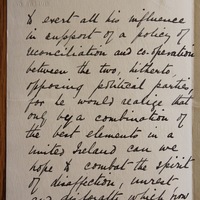 to exert all his influence
in support of a policy of
reconciliation and co-operation
between the two, hitherto,
opposing political parties,
for he would realize that
only by a combination of
the best elements in a
united Ireland can we
hope to combat the spirit
of disaffection, unrest
and disloyalty which now